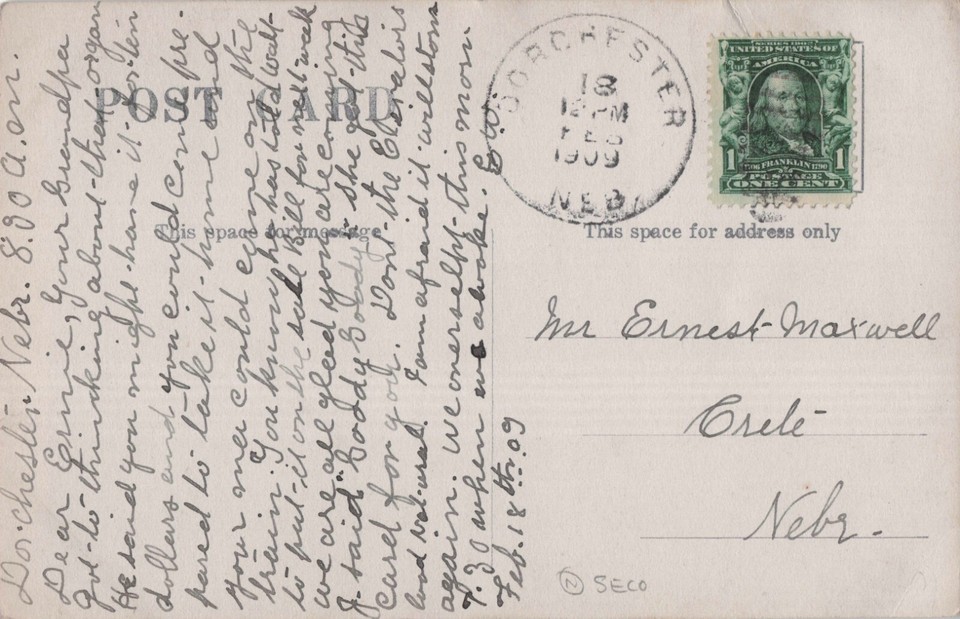 POST CARD
This space for message
This space for address only
DORCHESTER
18
12 PM
FEB
1909
NEB.
SERIES 1902
UNITED STATES OF
AMERICA
1 FRANKLIN 1790 1
POSTAGE
ONE CENT
Mr Ernest Maxwell
Crete
Nebr.
② SECO
Dorchester Nebr. 8.30 a.m.
Dear Ernie, Your Grandpa
got to thinking about that organ
He said you might have it for ten
dollars and you could come pre-
pared to take it home and
your ma could come on the
train. You know he has told Walt
to put it on the sale Bill for next week
we are all glad you are coming
J. said "Goody Goody" she got this
card for you. Dont the Elevators
look natural. I am afraid it will storm
again. We overslept this morn.
7.30 when we awoke.
Feb. 18th. 09